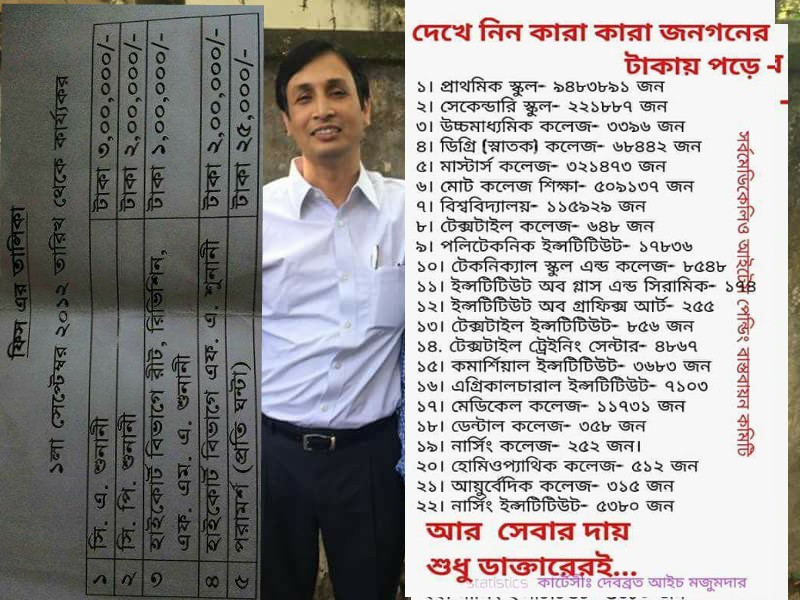 ফিস এর তালিকা
১লা সেপ্টেম্বর ২০১২ তারিখ থেকে কার্য্যকর
১ সি. এ. শুনানী টাকা ৩,০০,০০০/-
২ সি. পি. শুনানী টাকা ২,০০,০০০/-
৩ হাইকোর্ট বিভাগে রীট, রিভিশন, টাকা ১,০০,০০০/-
এফ. এম. এ. শুনানী
৪ হাইকোর্ট বিভাগে এফ. এ. শুনানী টাকা ২,০০,০০০/-
৫ পরামর্শ (প্রতি ঘন্টা) টাকা ২৫,০০০/-
দেখে নিন কারা কারা জনগনের
টাকায় পড়ে -
১। প্রাথমিক স্কুল- ৯৪৮৩৮৯১ জন
২। সেকেন্ডারি স্কুল- ২২১৮৮৭ জন
৩। উচ্চমাধ্যমিক কলেজ- ৩৩৯৬ জন
৪। ডিগ্রি (স্নাতক) কলেজ- ৬৮৪৪২ জন
৫। মাস্টার্স কলেজ- ৩২১৪৭৩ জন
৬। মোট কলেজ শিক্ষা- ৫০৯১৩৭ জন
৭। বিশ্ববিদ্যালয়- ১১৫৯২৯ জন
৮। টেক্সটাইল কলেজ- ৬৪৮ জন
৯। পলিটেকনিক ইন্সটিটিউট- ১৭৮৩৬
১০। টেকনিক্যাল স্কুল এন্ড কলেজ- ৮৫৪৮
১১। ইন্সটিটিউট অব গ্লাস এন্ড সিরামিক- ১৭৪
১২। ইন্সটিটিউট অব গ্রাফিক্স আর্ট- ২৫৫
১৩। টেক্সটাইল ইন্সটিটিউট- ৮৫৬ জন
১৪. টেক্সটাইল ট্রেইনিং সেন্টার- ৪৮৬৭
১৫। কমার্শিয়াল ইন্সটিটিউট- ৩৬৮৩ জন
১৬। এগ্রিকালচারাল ইন্সটিটিউট- ৭১০৩
১৭। মেডিকেল কলেজ- ১১৭৩১ জন
১৮। ডেন্টাল কলেজ- ৩৫৮ জন
১৯। নার্সিং কলেজ- ২৫২ জন।
২০। হোমিওপ্যাথিক কলেজ- ৫১২ জন
২১। আয়ুর্বেদিক কলেজ- ৩১৫ জন
২২। নার্সিং ইন্সটিটিউট- ৫৩৮০ জন
আর সেবার দায়
শুধু ডাক্তারেরই...
Statistics কার্টেসীঃ দেবব্রত আইচ মজুমদার
বাস্তবায়ন কমিটি